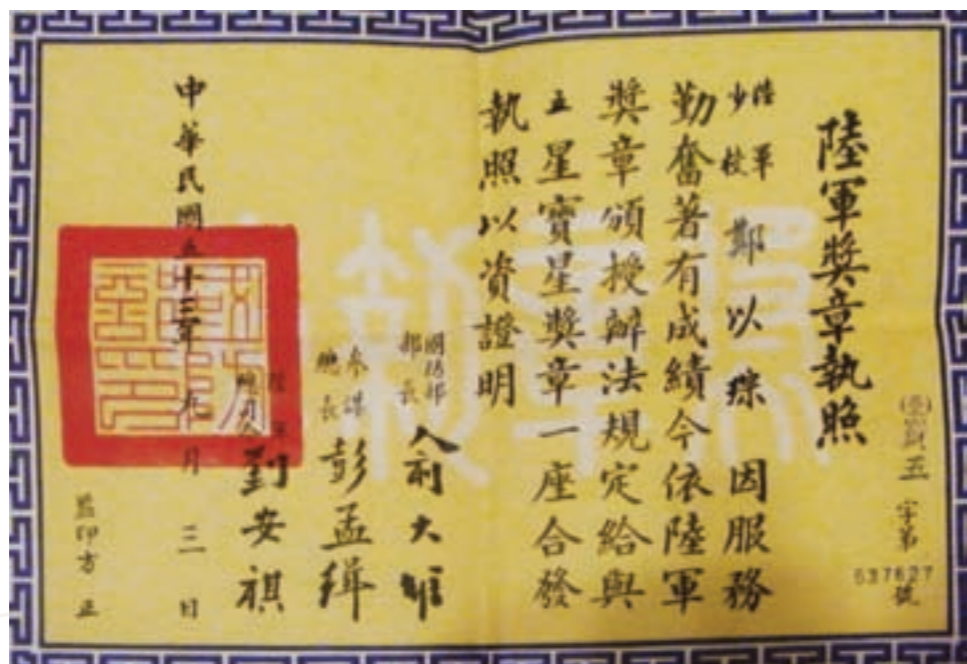 陸軍獎章執照
五字第537627號
陸軍少校鄭以琮因服務
勤奮著有成績今依陸軍
獎章頒授辦法規定給與
五星寶星獎章一座合發
執照以資證明
國防部部長俞大維
參謀總長彭孟緝
陸軍總司令劉安祺
中華民國五十三年九月三日
監印方正